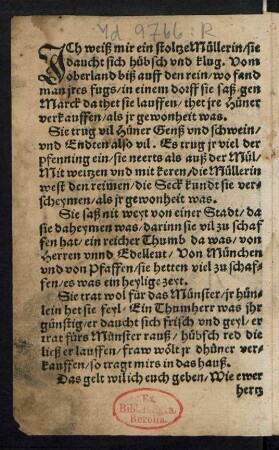 Yd 9766 : R
ICh weiß mir ein stoltze Müllerin/sie
daucht sich hübsch vnd klug. Vom
oberland biß auff den rein/wo fand
man jres fugs/in einem dorff sie saß/gen
Marck da thet sie lauffen/thet jre Hüner
verkauffen/als jr gewonheit was.
Sie trug vil Hüner Genß vnd schwein/
vnd Endten also vil. Es trug jr viel der
pfenning ein/sie neerts als auß der Mül/
Mit weitzen vnd mit keren/die Müllerin
west den reimen/die Seck kundt sie ver-
scheymen/als jr gewonheit was.
Sie saß nit weyt von einer Stadt/da
sie daheymen was/darinn sie vil zu schaf
fen hat/ein reicher Thumb da was/von
Herren vnnd Edelleut/Von München
vnd von Pfaffen/sie hetten viel zu schaf-
fen/es was ein heylige zeyt.
Sie trat wol für das Münster/jr hün-
lein het sie feyl/Ein Thumherr was jhr
günstig/er daucht sich frisch vnd geyl/er
trat fürs Münster rauß/hübsch red die
ließ er lauffen/fraw wölt jr dhüner ver-
kauffen/so tragt mirs in das hauß.
Das gelt wil ich euch geben/Wie ewer
hertz
Ex
Biblioth. Regia
Berolin.